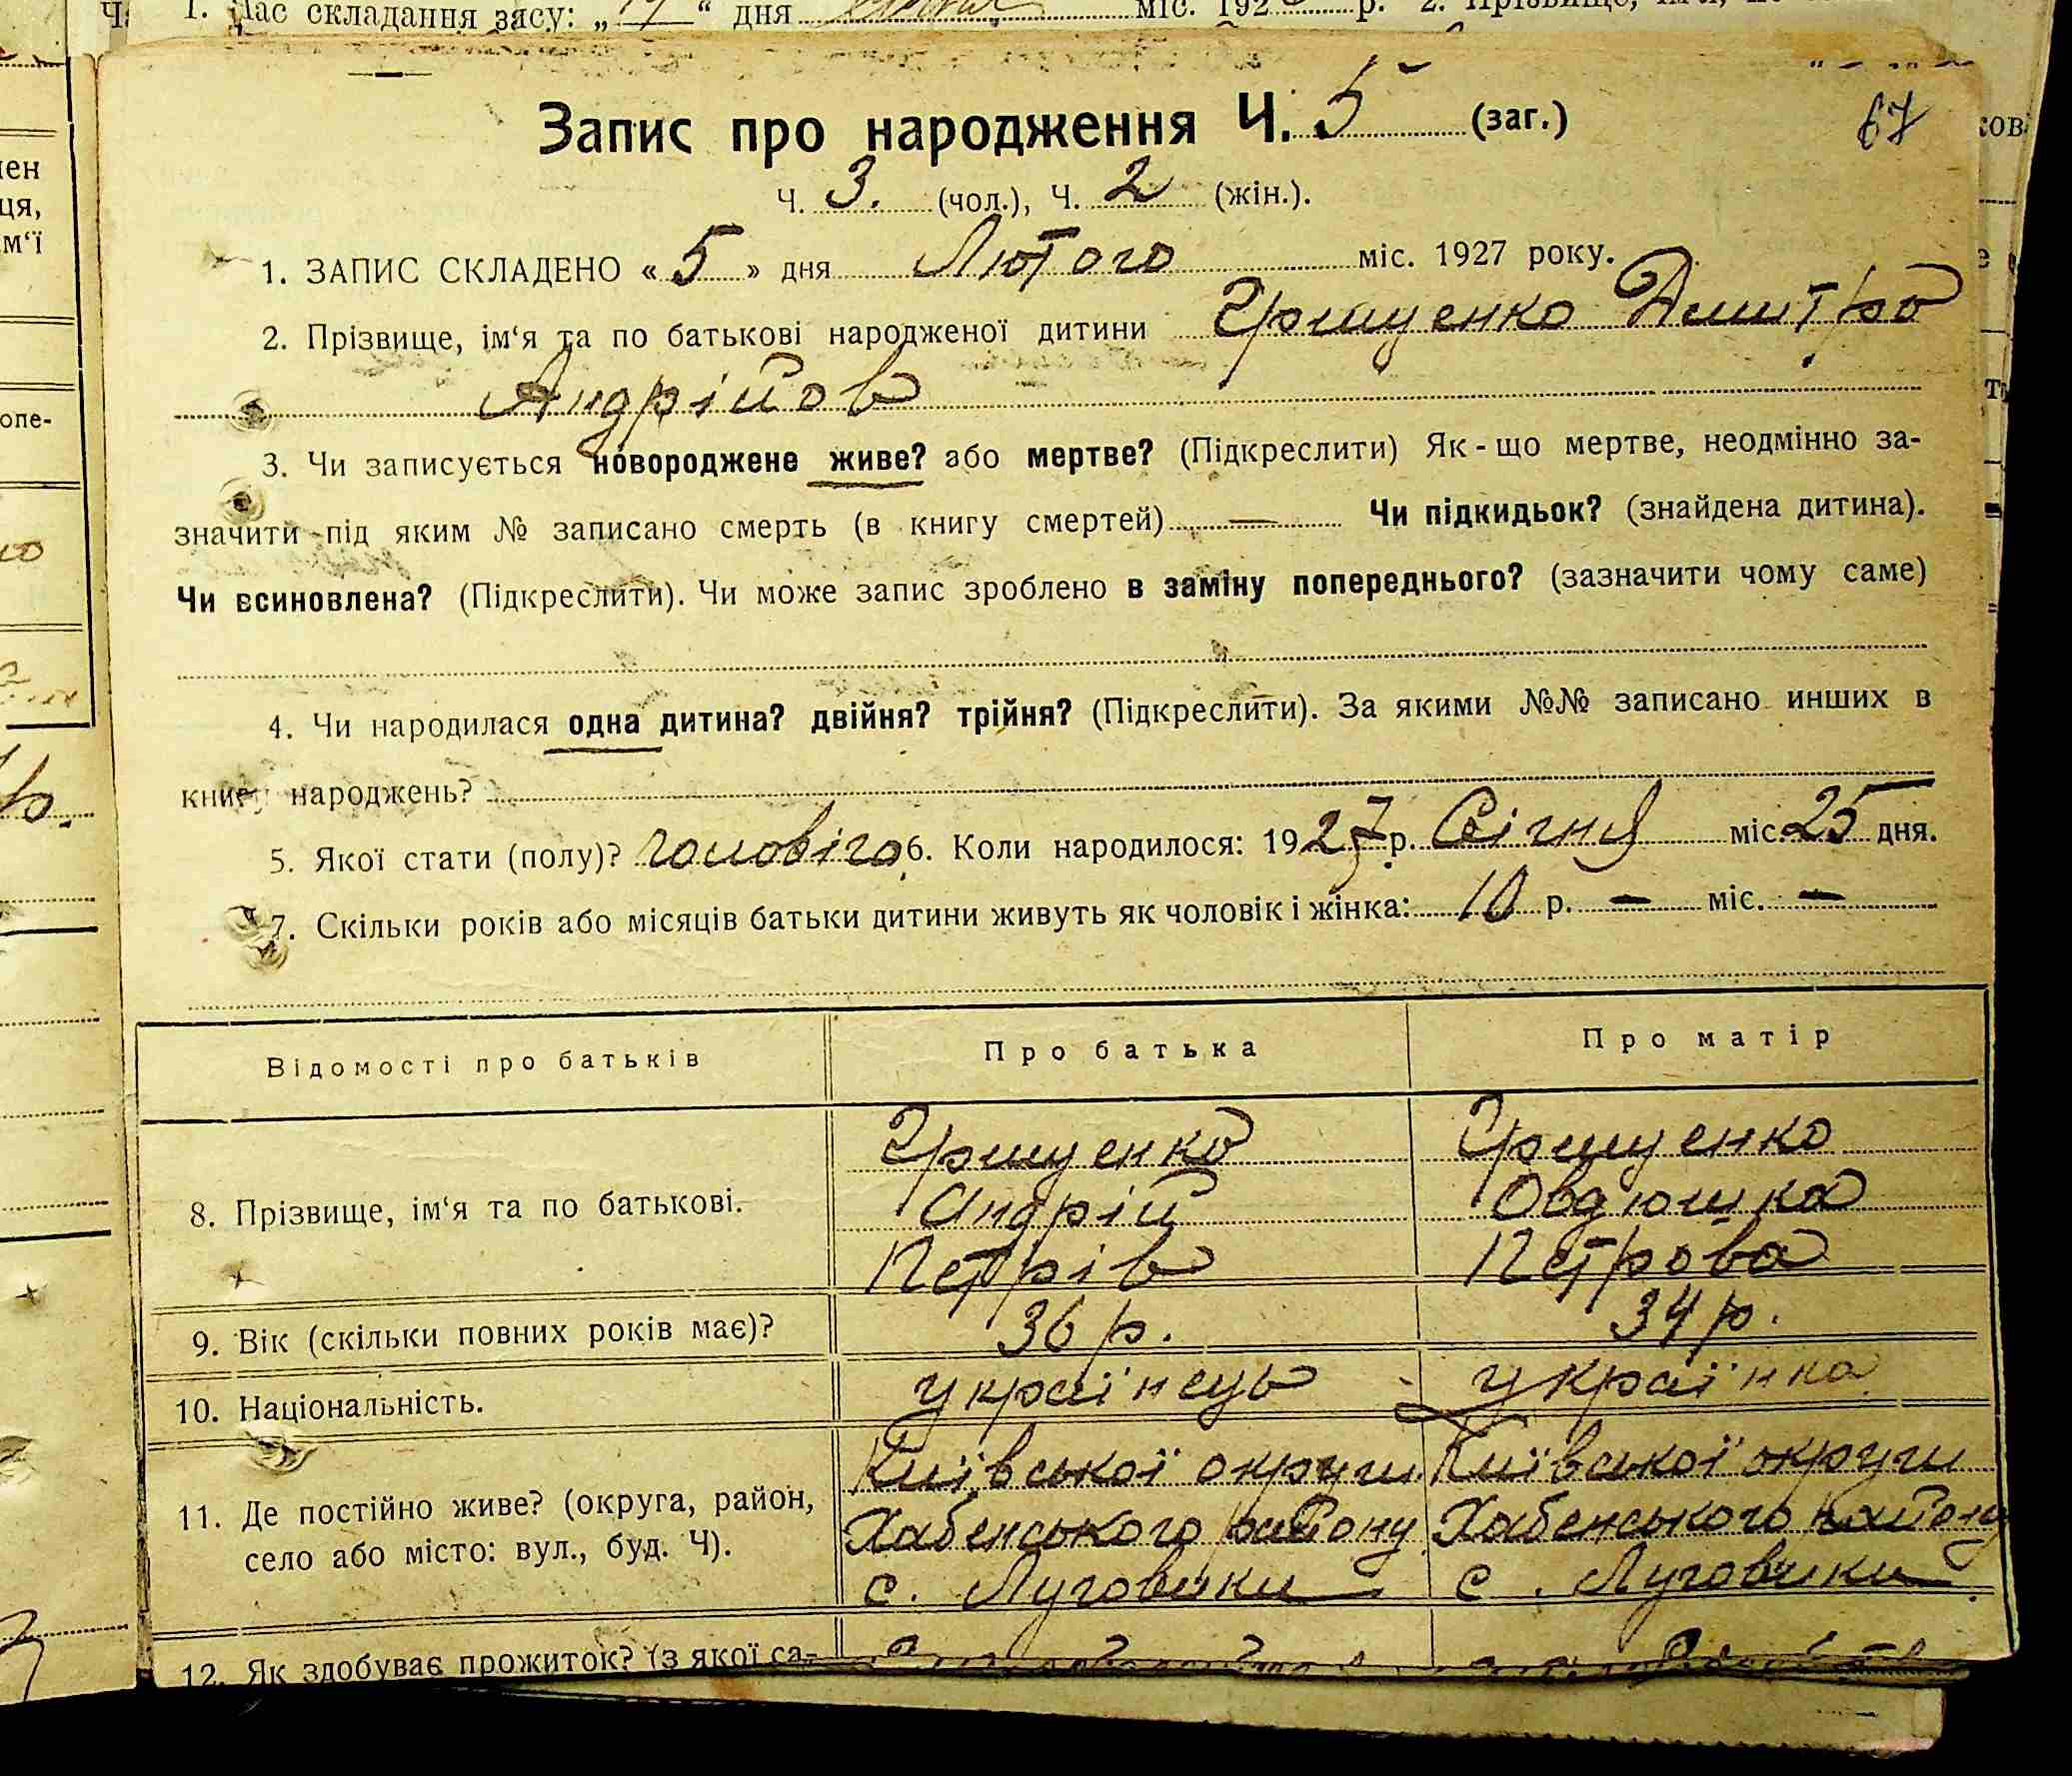 1. Час складання засу: „ “ дня міс. 192 р. 2. Прізвище,
Запис про народження Ч. 5 (заг.)
67
Ч. 3. (чол.), Ч. 2 (жін.).
1. ЗАПИС СКЛАДЕНО « 5 » дня Лютого міс. 1927 року.
2. Прізвище, ім‘я та по батькові народженої дитини Грищенко Дмитро
Андрійов
3. Чи записується новороджене живе? або мертве? (Підкреслити) Як-що мертве, неодмінно за-
значити під яким № записано смерть (в книгу смертей) — Чи підкидьок? (знайдена дитина).
Чи всиновлена? (Підкреслити). Чи може запис зроблено в заміну попереднього? (зазначити чому саме)
4. Чи народилася одна дитина? двійня? трійня? (Підкреслити). За якими №№ записано инших в
книгу народжень?
5. Якої стати (полу)? чоловічо 6. Коли народилося: 1927 р. Січня міс. 25 дня.
7. Скільки років або місяців батьки дитини живуть як чоловік і жінка: 10 р. — міс. —
Відомості про батьків Про батька Про матір
Грищенко Грищенко
8. Прізвище, ім‘я та по батькові. Андрій Овдюшка
Петрів Петрова
9. Вік (скільки повних років має)? 36 р. 34 р.
10. Національність. українець українка
Київської округи Київської округи
11. Де постійно живе? (округа, район, Хабенського району Хабенського району
село або місто: вул., буд. Ч). с. Луговики с. Луговики
12. Як здобуває прожиток? (з якої са-